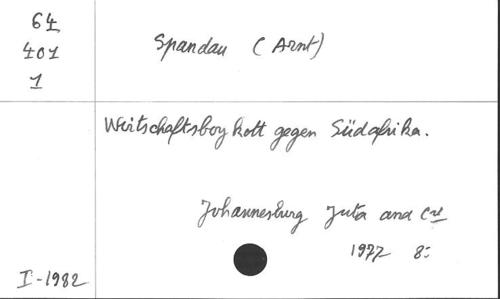 64
401
1
Spandau (Arnt)
Wirtschaftsboykott gegen Südafrika.
Johannesburg Juta and Cie
1977 8:
I-1982